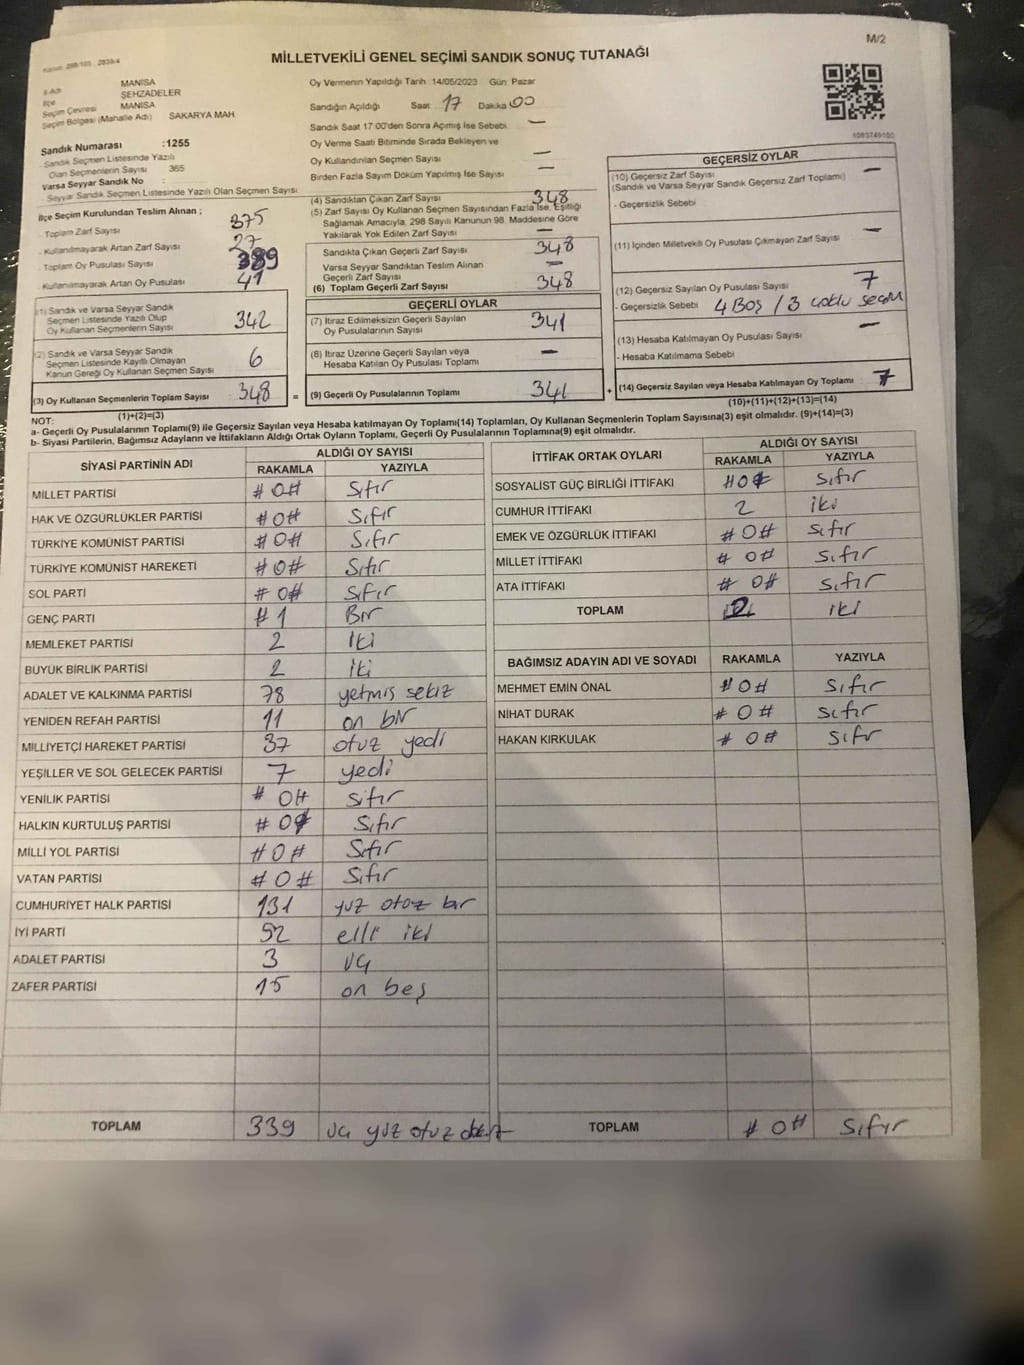 M/2
Kanun: 298/105 2839/4
MİLLETVEKİLİ GENEL SEÇİMİ SANDIK SONUÇ TUTANAĞI
İl Adı MANİSA
İlçe ŞEHZADELER
Seçim Çevresi MANİSA
Seçim Bölgesi (Mahalle Adı) SAKARYA MAH
Sandık Numarası :1255
Sandık Seçmen Listesinde Yazılı
Olan Seçmenlerin Sayısı 365
Varsa Seyyar Sandık No :
Seyyar Sandık Seçmen Listesinde Yazılı Olan Seçmen Sayısı
İlçe Seçim Kurulundan Teslim Alınan ;
- Toplam Zarf Sayısı 375
- Kullanılmayarak Artan Zarf Sayısı 27
- Toplam Oy Pusulası Sayısı 389
- Kullanılmayarak Artan Oy Pusulası 41
(1) Sandık ve Varsa Seyyar Sandık
Seçmen Listesinde Yazılı Olup
Oy Kullanan Seçmenlerin Sayısı 342
(2) Sandık ve Varsa Seyyar Sandık
Seçmen Listesinde Kayıtlı Olmayan
Kanun Gereği Oy Kullanan Seçmen Sayısı 6
(3) Oy Kullanan Seçmenlerin Toplam Sayısı 348 =
(1)+(2)=(3)
Oy Vermenin Yapıldığı Tarih :14/05/2023 Gün: Pazar
Sandığın Açıldığı Saat 17 Dakika 00
Sandık Saat 17:00'den Sonra Açımış İse Sebebi —
Oy Verme Saati Bitiminde Sırada Bekleyen ve
Oy Kullandırılan Seçmen Sayısı —
Birden Fazla Sayım Döküm Yapılmış İse Sayısı —
(4) Sandıktan Çıkan Zarf Sayısı 348
(5) Zarf Sayısı Oy Kullanan Seçmen Sayısından Fazla İse, Eşitliği
Sağlamak Amacıyla, 298 Sayılı Kanunun 98. Maddesine Göre
Yakılarak Yok Edilen Zarf Sayısı —
Sandıkta Çıkan Geçerli Zarf Sayısı 348
Varsa Seyyar Sandıktan Teslim Alınan
Geçerli Zarf Sayısı —
(6) Toplam Geçerli Zarf Sayısı 348
GEÇERLİ OYLAR
(7) İtiraz Edilmeksizin Geçerli Sayılan
Oy Pusulalarının Sayısı 341
(8) İtiraz Üzerine Geçerli Sayılan veya
Hesaba Katılan Oy Pusulası Toplamı —
(9) Geçerli Oy Pusulalarının Toplamı 341 +
1083749100
GEÇERSİZ OYLAR
(10) Geçersiz Zarf Sayısı —
(Sandık ve Varsa Seyyar Sandık Geçersiz Zarf Toplamı)
- Geçersizlik Sebebi
(11) İçinden Milletvekili Oy Pusulası Çıkmayan Zarf Sayısı —
(12) Geçersiz Sayılan Oy Pusulası Sayısı 7
- Geçersizlik Sebebi 4 Boş / 3 çoklu seçim
(13) Hesaba Katılmayan Oy Pusulası Sayısı —
- Hesaba Katılmama Sebebi
(14) Geçersiz Sayılan veya Hesaba Katılmayan Oy Toplamı 7
(10)+(11)+(12)+(13)=(14)
NOT:
a- Geçerli Oy Pusulalarının Toplamı(9) ile Geçersiz Sayılan veya Hesaba Katılmayan Oy Toplamı(14) Toplamları, Oy Kullanan Seçmenlerin Toplam Sayısına(3) eşit olmalıdır. (9)+(14)=(3)
b- Siyasi Partilerin, Bağımsız Adayların ve İttifakların Aldığı Ortak Oyların Toplamı, Geçerli Oy Pusulalarının Toplamına(9) eşit olmalıdır.
SİYASİ PARTİNİN ADI ALDIĞI OY SAYISI
RAKAMLA YAZIYLA
MİLLET PARTİSİ #0# Sıfır
HAK VE ÖZGÜRLÜKLER PARTİSİ #0# Sıfır
TÜRKİYE KOMÜNİST PARTİSİ #0# Sıfır
TÜRKİYE KOMÜNİST HAREKETİ #0# Sıfır
SOL PARTİ #0# Sıfır
GENÇ PARTİ #1 Bir
MEMLEKET PARTİSİ 2 İki
BÜYÜK BİRLİK PARTİSİ 2 İki
ADALET VE KALKINMA PARTİSİ 78 yetmiş sekiz
YENİDEN REFAH PARTİSİ 11 on bir
MİLLİYETÇİ HAREKET PARTİSİ 37 otuz yedi
YEŞİLLER VE SOL GELECEK PARTİSİ 7 yedi
YENİLİK PARTİSİ #0# sıfır
HALKIN KURTULUŞ PARTİSİ #0# Sıfır
MİLLİ YOL PARTİSİ #0# Sıfır
VATAN PARTİSİ #0# Sıfır
CUMHURİYET HALK PARTİSİ 131 yüz otuz bir
İYİ PARTİ 52 elli iki
ADALET PARTİSİ 3 üç
ZAFER PARTİSİ 15 on beş
TOPLAM 339 üç yüz otuz dokuz
İTTİFAK ORTAK OYLARI ALDIĞI OY SAYISI
RAKAMLA YAZIYLA
SOSYALİST GÜÇ BİRLİĞİ İTTİFAKI #0# Sıfır
CUMHUR İTTİFAKI 2 iki
EMEK VE ÖZGÜRLÜK İTTİFAKI #0# sıfır
MİLLET İTTİFAKI #0# sıfır
ATA İTTİFAKI #0# sıfır
TOPLAM 2 iki
BAĞIMSIZ ADAYIN ADI VE SOYADI RAKAMLA YAZIYLA
MEHMET EMİN ÖNAL #0# Sıfır
NİHAT DURAK #0# sıfır
HAKAN KIRKULAK #0# sıfır
TOPLAM #0# Sıfır